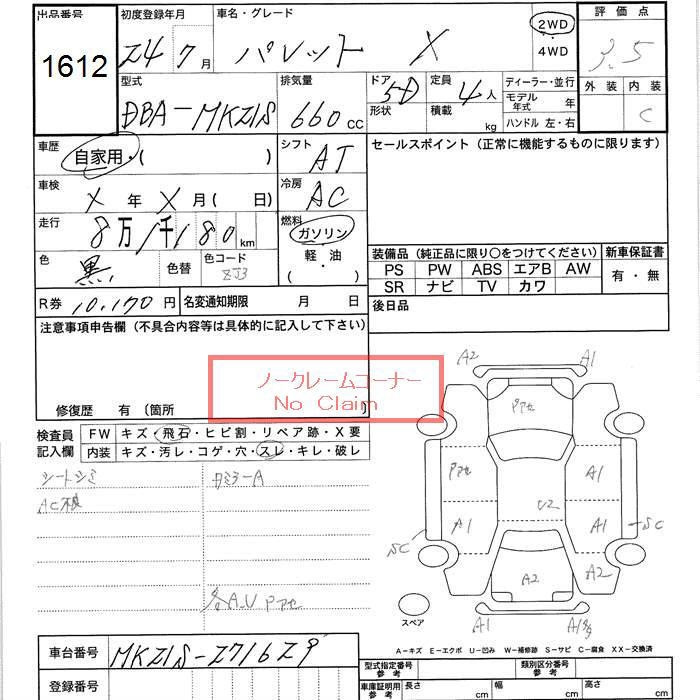 出品番号
1612
初度登録年月
24 7月
車名・グレード
パレット X
2WD
・
4WD
評価点
3.5
外装 内装
C
型式
DBA-MK21S
排気量
660cc
ドア形状
5D
定員 4人
積載 kg
ディーラー・並行
モデル年式 年
ハンドル 左・右
車歴
自家用・( )
シフト AT
セールスポイント(正常に機能するものに限ります)
車検
X 年 X 月( 日)
冷房 AC
走行
8万1千180km
燃料
ガソリン
軽・油
( )
色 黒
色替
色コード
ZJ3
装備品(純正品に限り○をつけてください)
新車保証書
PS PW ABS エアB AW
有・無
SR ナビ TV カワ
R券 10,170円
名変通知期限 月 日
後日品
注意事項申告欄(不具合内容等は具体的に記入して下さい)
ノークレームコーナー
No Claim
修復歴 有(箇所 )
検査員
記入欄
FW キズ・飛石・ヒビ割・リペア跡・X要
内装 キズ・汚レ・コゲ・穴・スレ・キレ・破レ
シートシミ
AC不良
各A.U Pアセ
A2 A1
Pアセ
Pアセ A1
U2
A1 A1
SC SC
A2 A2
スペア
A1
A-キズ E-エクボ U-凹み W-補修跡 S-サビ C-腐食 XX-交換済
車台番号 MK21S-271629
登録番号
型式指定番号
参考
類別区分番号
参考
車庫証明用
参考
長さ cm
幅 cm
高さ cm